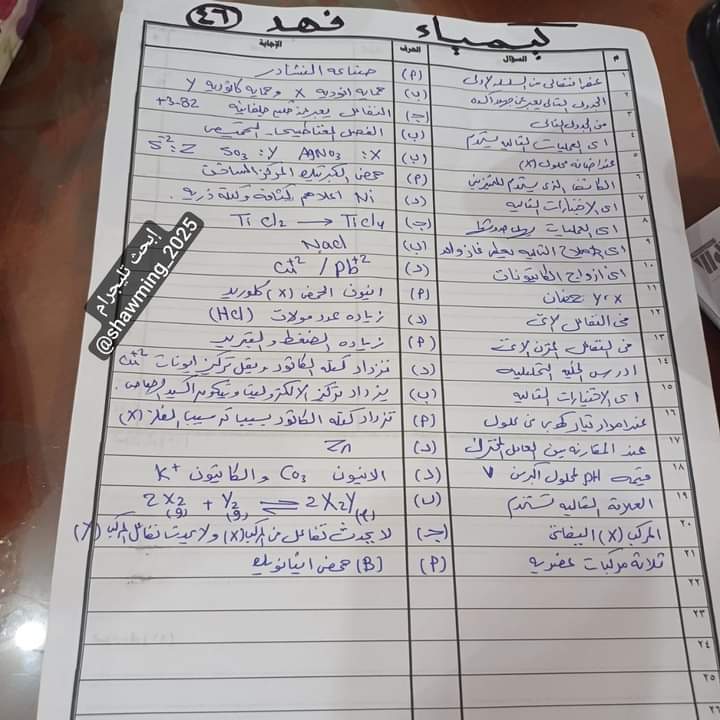 كيمياء فهد (٤٦)
م السؤال الحرف الإجابة
١ عنصر انتقالى من السلسلة الاولى (P) صناعة النشادر
٢ الجدول التالى يعبر عن (ب) حماية انودية X وحماية كاثودية Y
٣ من الجدول التالى (ج) التفاعل يعبر عن خلية جلفانية +3.82
٤ اى العمليات التالية يستخدم (ب) الفصل المغناطيسى - التحميص
٥ عند اضافة محلول (X) (ب) X: AgNO3 Y: SO3 Z: S-2
٦ الكاشف الذى يستخدم للتمييز بين (P) حمض الكبرتيك المركز الساخن
٧ اى الاختيارات التالية (د) Ni اعلاهم كثافة وكتلة ذرية.
٨ اى العمليات (ج) Ti Cl2 → Ti Cl4
٩ اى التالية يعطى غاز واحد (ب) Nacl
١٠ اى ازواج الكاتيونات (د) Cu+2 / Pb+2
١١ X، Y حمضان (P) انيون الحمض (X) كلوريد
١٢ فى التفاعل الاتى (د) زيادة عدد مولات (Hcl)
١٣ فى التفاعل المتزن الاتى (P) زيادة الضغط والتبريد
١٤ ادرس الخلية التحليلية (د) تزداد كتلة الكاثود ويقل تركيز ايونات Cu+2
١٥ اى الاختيارات التالية (ب) يزداد تركيز الالكتروليت ويتكون اكسيد الرصاص.
١٦ عند امرار تيار كهربى فى محلول (P) تزداد كتلة الكاثود بسبب ترسيب الفلز (X)
١٧ عند المقارنة بين العامل المختزل (د) Zn
١٨ قيمة PH لمحلول اكبر من ٧ (د) الانيون CO3 والكاتيون K+
١٩ العلاقة التالية تستخدم (ب) 2X2(g) + Y2(g) ⇌ 2X2Y(g)
٢٠ المركب (X) اليفاتى (ج) لا يحدث تفاعل من المركب (X) ولا يحدث تفاعل المركب (Y)
٢١ ثلاثة مركبات عضوية (P) (B) حمض ايثانويك
٢٢
٢٣
٢٤
٢٥
٢٦
إبحث تليجرام
@shawming_2025